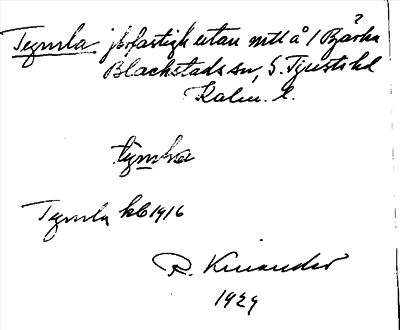 Tegmla jbrfastigh utan mtl å 1 Bjärka
Blackstads sn, S. Tjusts hd
Kalm. l.
tymla
Tegmla kb 1916
R. Kinander
1929